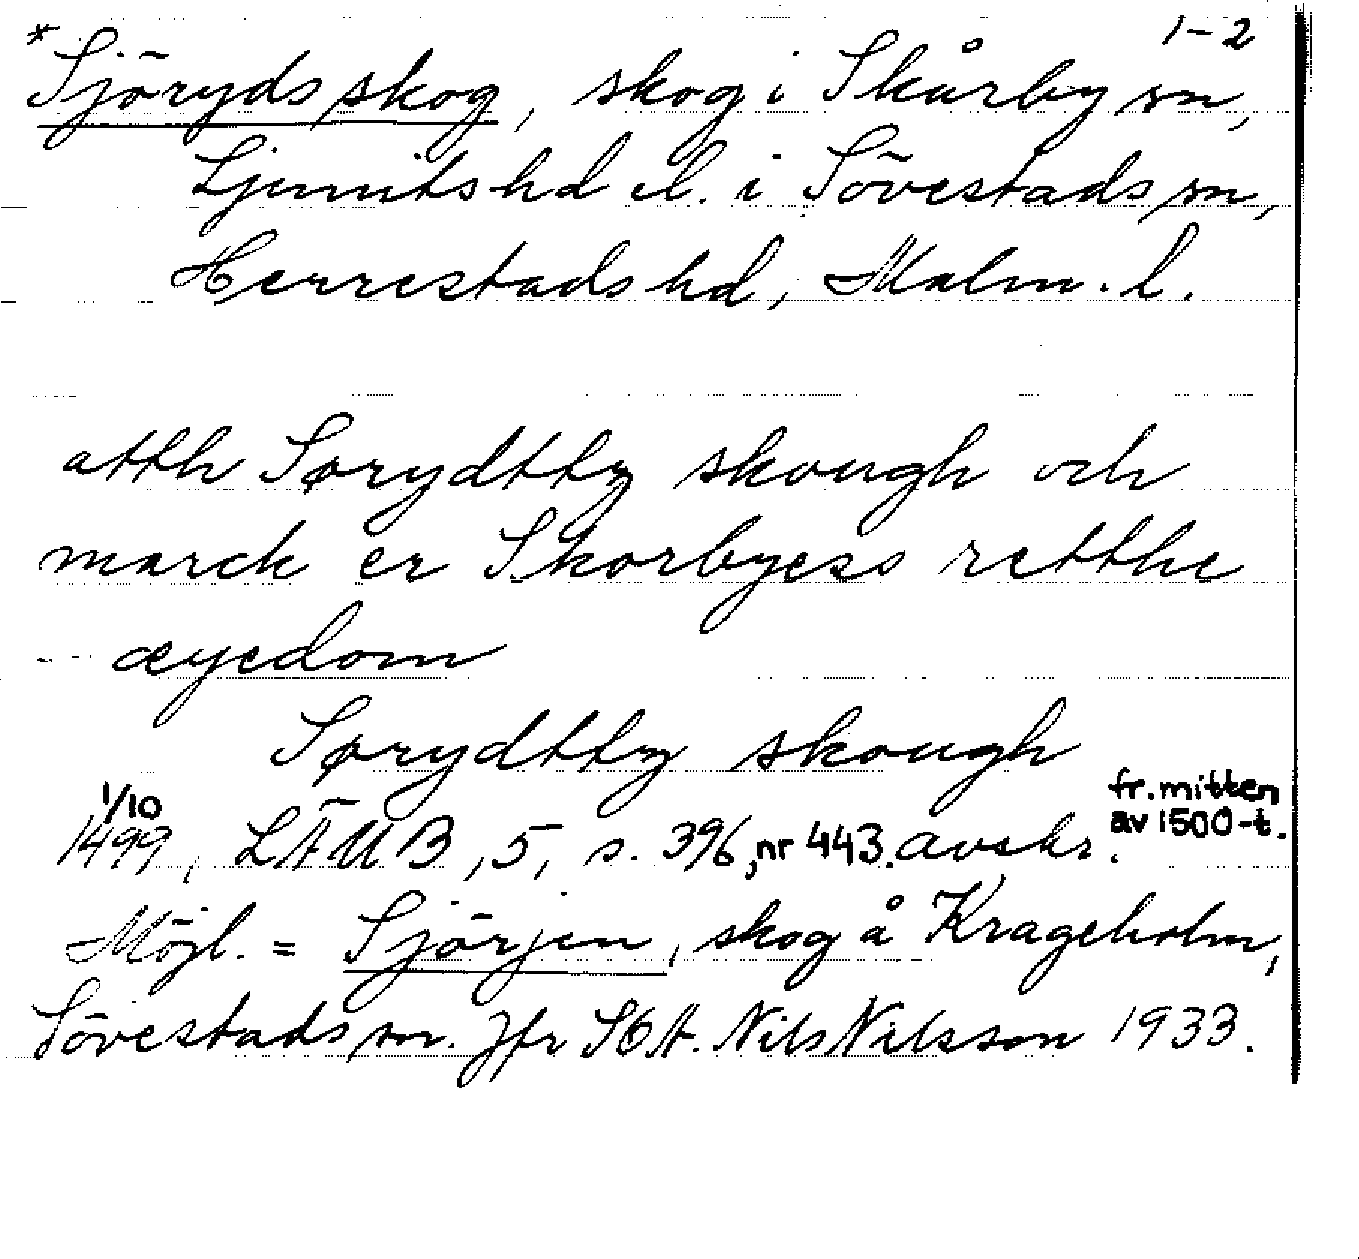 1-2
*Sjörydsskog, skog i Skårby sn,
Ljunits hd el. i Sövestads sn,
Herrestads hd, Malm. l.
atth Sørydttz skough och
marck er Skorbyess retthe
-- æyedom
Sørydttz skough
1/10 fr. mitten
1499, LÄUB, 5, s. 396, nr 443. avskr. av 1500-t.
Möjl. = Sjörjen, skog å Krageholm,
Sövestads sn. Jfr SOA. Nils Nilsson 1933.